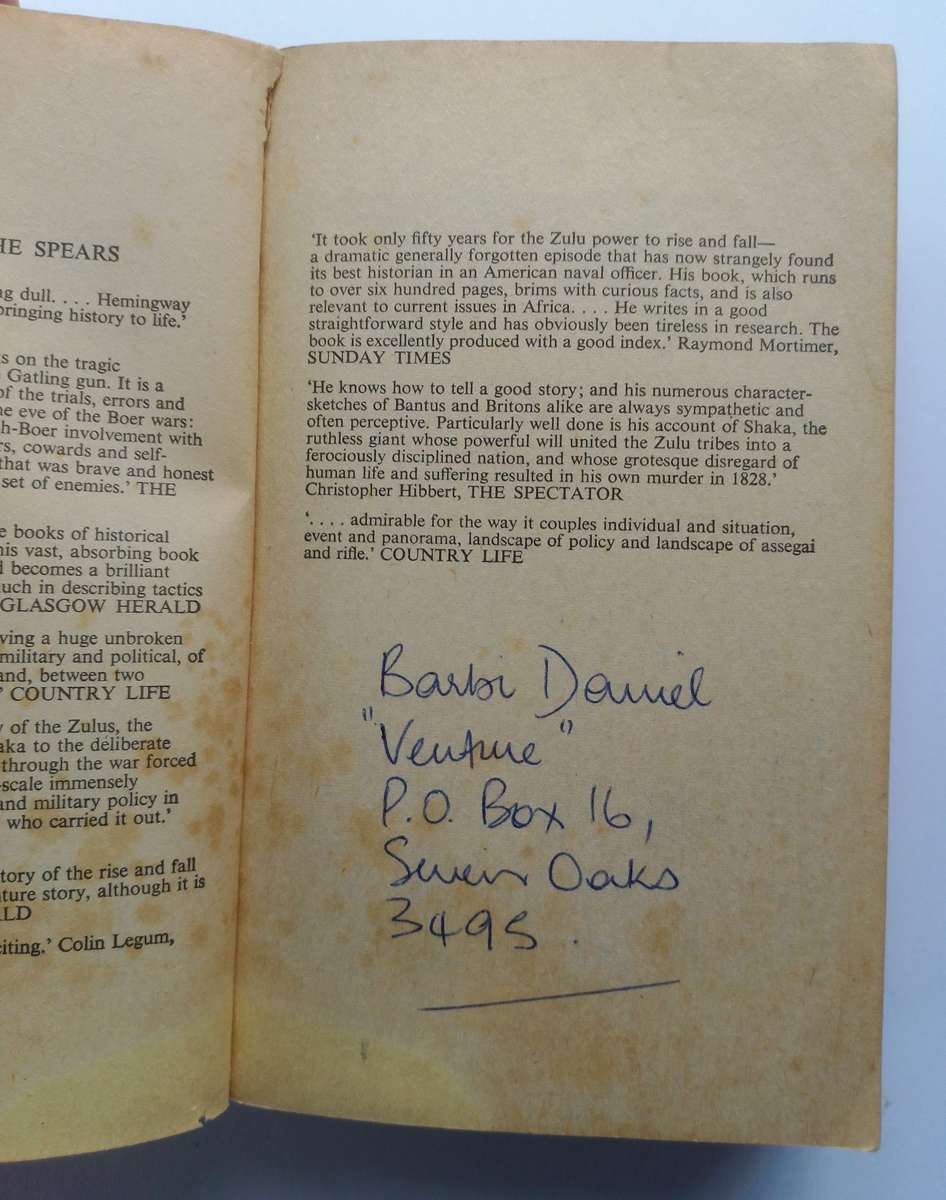 HE SPEARS
ng dull. . . . Hemingway
bringing history to life.’
s on the tragic
Gatling gun. It is a
of the trials, errors and
he eve of the Boer wars:
h-Boer involvement with
rs, cowards and self-
that was brave and honest
set of enemies.’ THE
e books of historical
his vast, absorbing book
d becomes a brilliant
uch in describing tactics
GLASGOW HERALD
ving a huge unbroken
military and political, of
and, between two
’ COUNTRY LIFE
y of the Zulus, the
aka to the deliberate
through the war forced
-scale immensely
and military policy in
who carried it out.’
tory of the rise and fall
ture story, although it is
LD
citing.’ Colin Legum,
‘It took only fifty years for the Zulu power to rise and fall—
a dramatic generally forgotten episode that has now strangely found
its best historian in an American naval officer. His book, which runs
to over six hundred pages, brims with curious facts, and is also
relevant to current issues in Africa. . . . He writes in a good
straightforward style and has obviously been tireless in research. The
book is excellently produced with a good index.’ Raymond Mortimer,
SUNDAY TIMES
‘He knows how to tell a good story; and his numerous character-
sketches of Bantus and Britons alike are always sympathetic and
often perceptive. Particularly well done is his account of Shaka, the
ruthless giant whose powerful will united the Zulu tribes into a
ferociously disciplined nation, and whose grotesque disregard of
human life and suffering resulted in his own murder in 1828.’
Christopher Hibbert, THE SPECTATOR
‘. . . . admirable for the way it couples individual and situation,
event and panorama, landscape of policy and landscape of assegai
and rifle.’ COUNTRY LIFE
Barbi Daniel
"Venture"
P.O. Box 16,
Seven Oaks
3495.